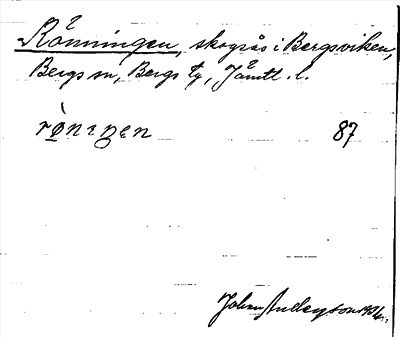 Rönningen, skogsås i Bergsviken,
Bergs sn, Bergs tg, Jämtl. l.
rø̀nıŋen 87
Johan Anderson